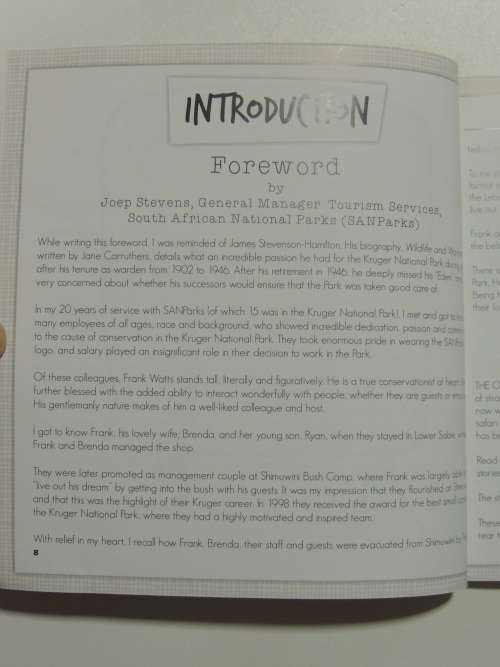 INTRODUCTION
Foreword
by
Joep Stevens, General Manager Tourism Services,
South African National Parks (SANParks)
While writing this foreword, I was reminded of James Stevenson-Hamilton. His biography, Wildlife and
written by Jane Carruthers, details what an incredible passion he had for the Kruger National Park during
after his tenure as warden from 1902 to 1946. After his retirement in 1946, he deeply missed his "Eden"
very concerned about whether his successors would ensure that the Park was taken good care of.
In my 20 years of service with SANParks (of which 15 was in the Kruger National Park), I met and got to
many employees of all ages, race and background, who showed incredible dedication, passion and
to the cause of conservation in the Kruger National Park. They took enormous pride in wearing the SANParks
logo, and salary played an insignificant role in their decision to work in the Park.
Of these colleagues, Frank Watts stands tall, literally and figuratively. He is a true conservationist at heart
further blessed with the added ability to interact wonderfully with people, whether they are guests or
His gentlemanly nature makes of him a well-liked colleague and host.
I got to know Frank, his lovely wife, Brenda, and her young son, Ryan, when they stayed in Lower Sabie
Frank and Brenda managed the shop.
They were later promoted as management couple at Shimuwini Bush Camp, where Frank was largely able
"live out his dream" by getting into the bush with his guests. It was my impression that they flourished at
and that this was the highlight of their Kruger career. In 1998 they received the award for the best small
the Kruger National Park, where they had a highly motivated and inspired team.
With relief in my heart, I recall how Frank, Brenda, their staff and guests were evacuated from Shimuwini by
8
live out
Frank
the
There
Park.
Being
their
THE
of
now
safari
has
Read
stories
The
These
tear